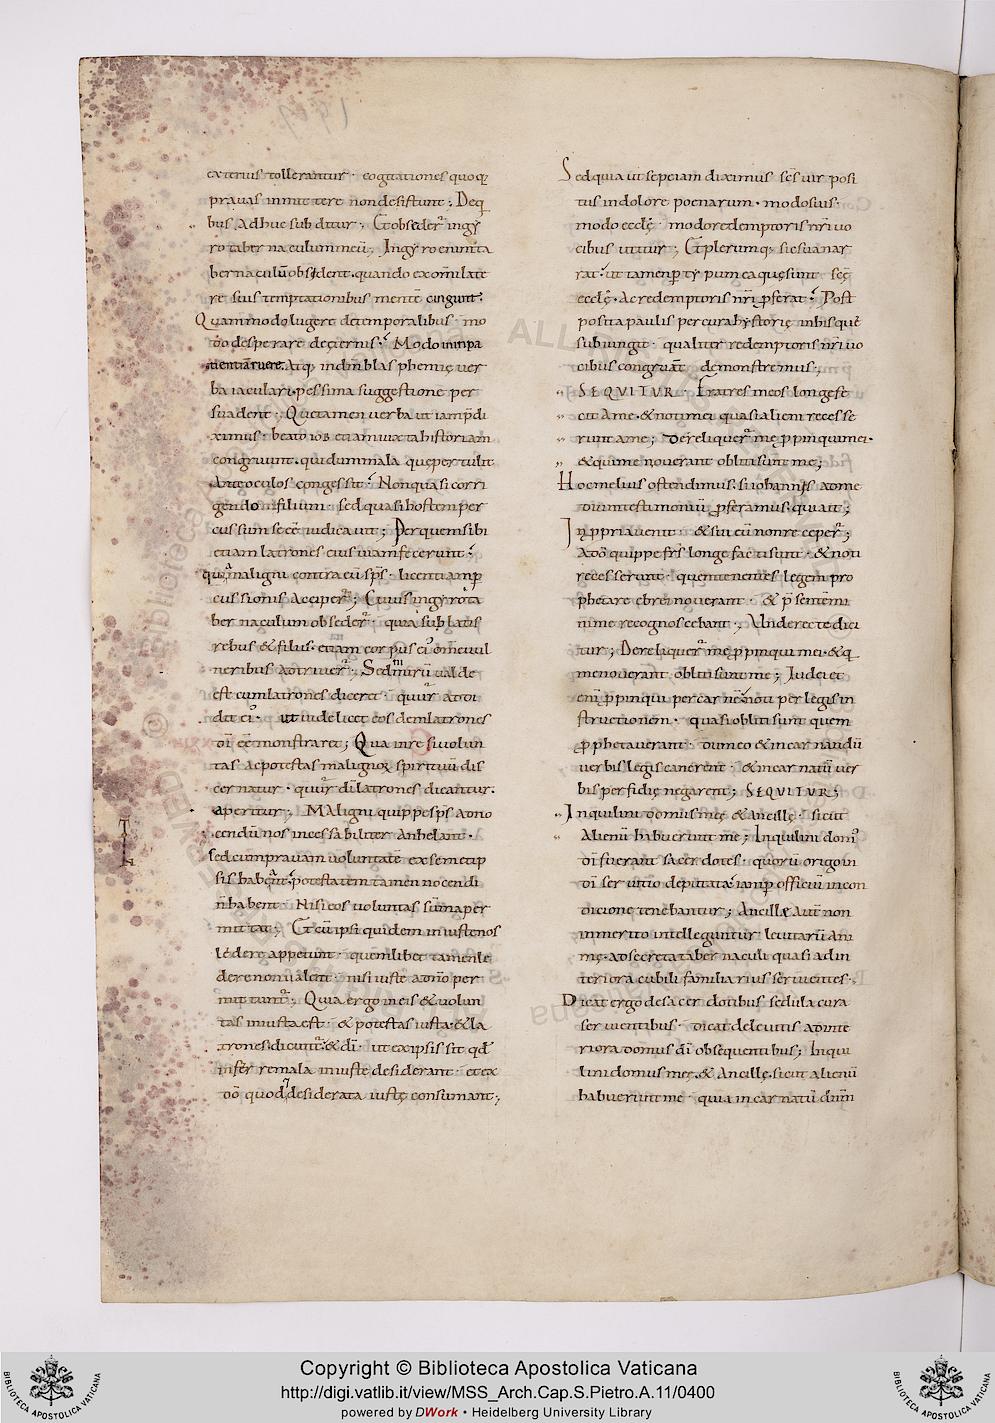 exterius tollerantur · cogitationes quoq;
prauas inmittere non desistunt ; Deq
bus adhuc subditur · Et obseder̄ ingy
ro tabernaculum meū, Ingyro enim ta
bernaculū obsident · quando ex om̄i late
re suis temptationibus mentē cingunt ·
Quam modo lugere de temporalibus · mo
do desperare de ęternis · Modo in inpa
tientiā ruere. Atq; in dm̄ blasphemię uer
ba iaculari · pessima suggestione per
suadent · Quę tamen uerba ut iam p̄di
ximus · beato iob etiam iuxta historiam
congruunt · qui dum mala quę pertulit
Ante oculos congessit · Non quasi corri
gendo filium · sed quasi hostem per
cussum se cē iudicauit ; Per quem sibi
etiam latrones eius uiam fecerunt ·
quia maligni contra eū sp̄s · licentiam p
cussionis acceper̄ ; Cuius in gyro ta
bernaculum obseder̄ · quia sublatis
rebus & filiis · etiam corpus ei om̄e uul
neribus adtriuer̄ · Sed mirū ualde
est cum latrones diceret · qur̄ addi
dit ei · ut uidelicet eosdem latrones
dī cē monstraret ; Qua in re si uolun
tas ac potestas malignoꝝ spirituū dis
cernatur · qur̄ dī latrones dicantur ·
aperitur · Maligni quippe sp̄s ad no
cendū nos incessabiliter anhelant ·
sed cum prauam uoluntatē ex semetip
sis habeant · potestatem tamen nocendi
n̄ habent · Nisi eos uoluntas sūma per
mittat ; Et cū ipsi quidem iniuste nos
lędere appetunt · quemlibet tamen lę
dere non ualent · nisi iuste a dn̄o per
mittunt̄ · Quia ergo in eis & uolun
tas iniusta est · & potestas iusta · & la
trones dicunt̄ & dī · ut ex ipsis sit qd̄
inferre mala iniuste desiderant · et ex
dō quod desiderata iuste consumant ;
Sed quia ut sepe iam diximus sc̄s uir posi
tus in dolore poenarum · modo suis ·
modo ecclę · modo redemptoris nr̄i uo
cibus utitur ; Et plerumq; sic sua nar
rat · ut tamen p typum ea quę sunt sc̄ę
ecclę · ac redemptoris nr̄i p̄ferat · Post
posita paulisper cura hystorię in his quę
subiungit · qualiter redemptoris nr̄i uo
cibus congruat · demonstremus ;
SEQVITVR · Fratres meos longe fe
cit a me · & noti mei quasi alieni recesse
runt a me ; Dereliquer̄ me p̄pinqui mei ·
& qui me nouerant obliti sunt me ;
Hoc melius ostendimus · si iohannis adme
dium testimoniū p̄feramus · qui ait ;
In p̄pria uenit · & sui eū non receper̄ ;
A dō quippe fr̄s longe facti sunt · & noti
recesserunt · quem tenentes legem pro
phetare ebrei nouerant · & p̄sentem
minime recognoscebant ; Vnde recte dici
tur ; Dereliquer̄ me p̄pinqui mei · & q
me nouerant obliti sunt me ; Iudei et
enī p̄pinqui per carnē noti per legis in
structionem · quasi obliti sunt quem
p̄phetauerant · dum eo & incarnandū
uerbis legis canerent · & incarnatū uer
bis perfidię negarent ; SEQVITVR ;
Inquilini domus meę & ancillę · sicut
alienū habuerunt me ; Inquilini dom̄
dī fuerant sacerdotes · quorū origo in
dī seruitio deputata iam p officiū in con
dicione tenebantur ; Ancillę aut̄ non
inmerito intelleguntur leuitarū ani
mę · ad secreta tabernaculi quasi ad in
teriora cubili familiarius seruientes ·
Dicat ergo de sacerdotibus sedula cura
seruientibus · dicat de leuitis ad inte
riora domus dī obsequentibus ; Inqui
lini domus meę · & ancillę · sicut alienū
habuerunt me · quia incarnatū dn̄m
ALL
Copyright © Biblioteca Apostolica Vaticana
http://digi.vatlib.it/view/MSS_Arch.Cap.S.Pietro.A.11/0400
powered by DWork • Heidelberg University Library
BIBLIOTECA APOSTOLICA VATICANA
BIBLIOTECA APOSTOLICA VATICANA